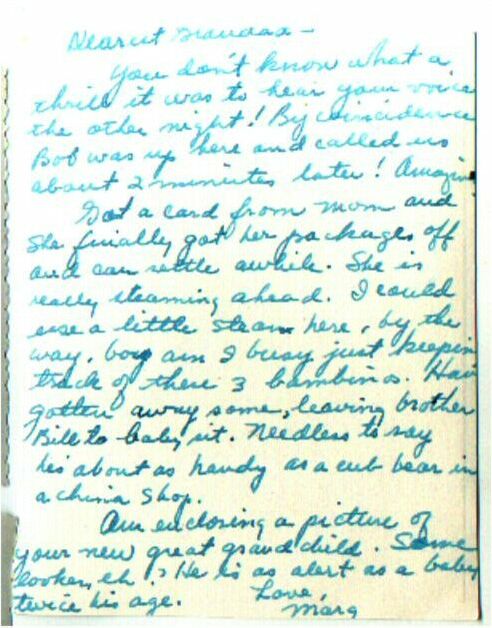 Dearest Grandad -
You don't know what a
thrill it was to hear your voice
the other night! By coincidence
Bob was up here and called us
about 2 minutes later! Amazin
Got a card from mom and
she finally got her packages off
and can settle awhile. She is
really steaming ahead. I could
use a little steam here, by the
way, boy am I busy just keepin
track of these 3 bambinos. Have
gotten away some, leaving brother
Bill to baby sit. Needless to say
his about as handy as a cub bear in
a china shop.
Am enclosing a picture of
your new great grandchild. Some
looker, eh? He is as alert as a baby
twice his age. Love,
Marg